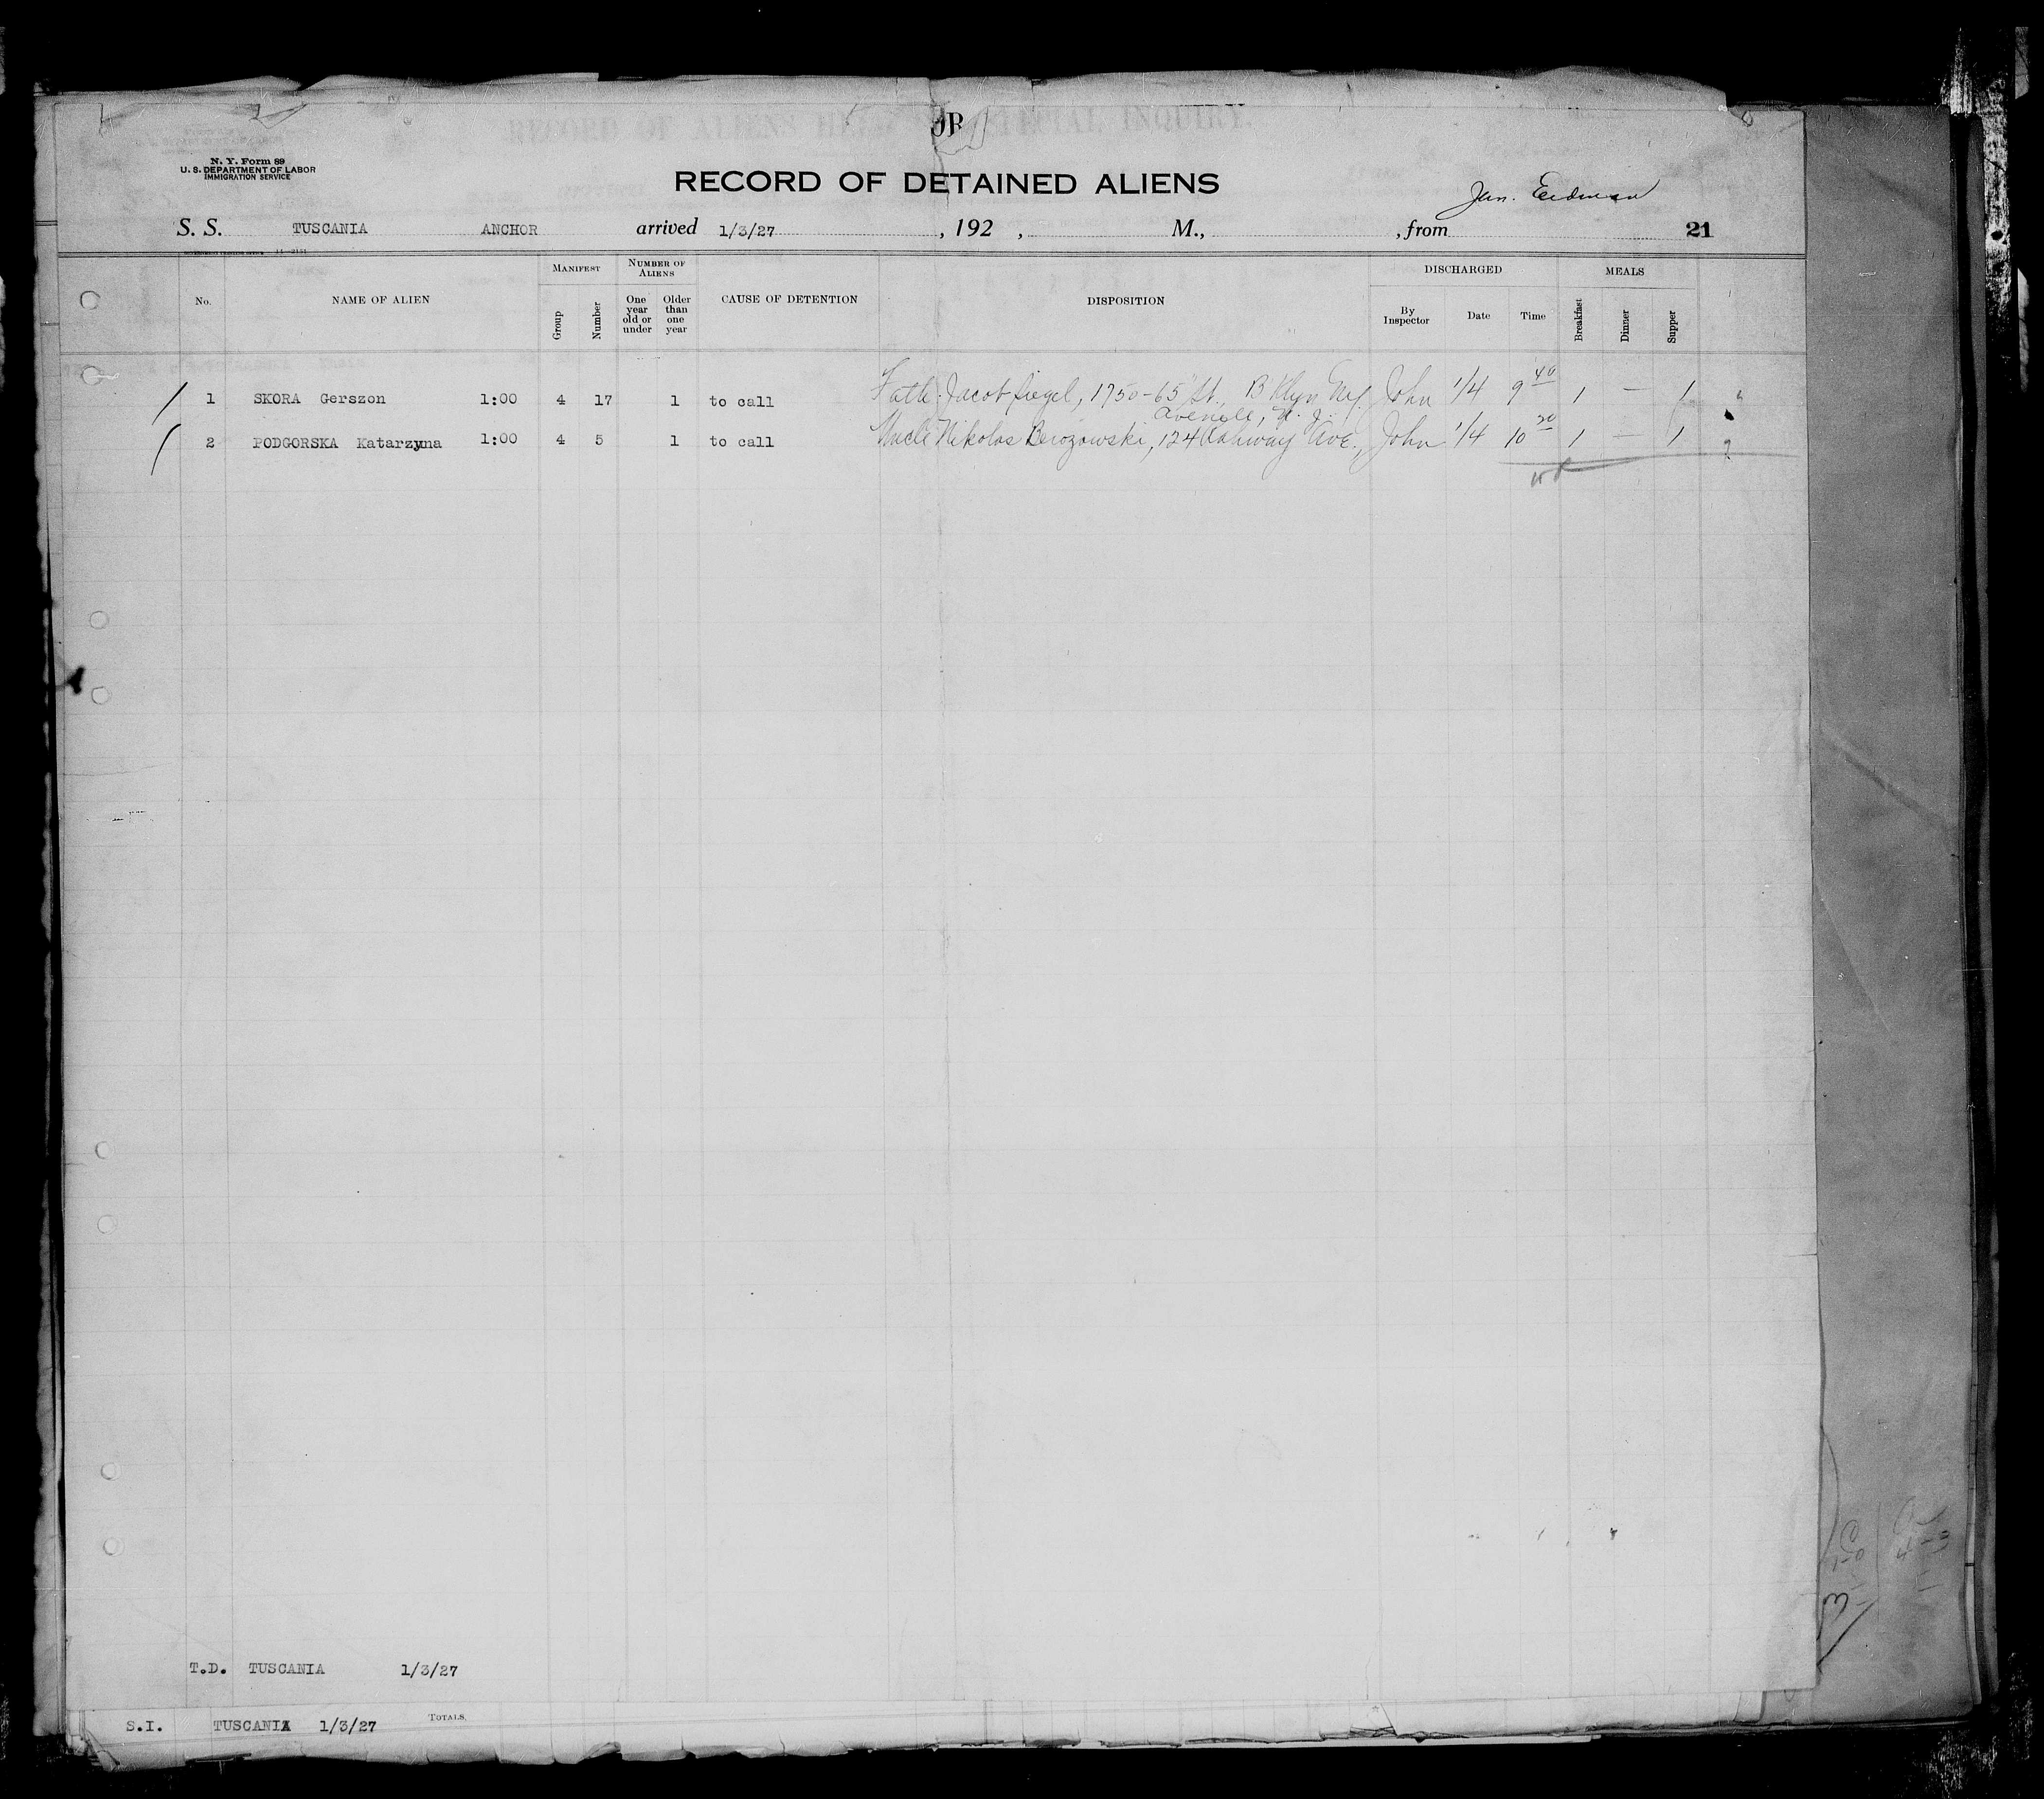 RECORD OF ALIENS HELD FOR SPECIAL INQUIRY.
N. Y. Form 89
U. S. DEPARTMENT OF LABOR
IMMIGRATION SERVICE
RECORD OF DETAINED ALIENS
S. S. TUSCANIA ANCHOR arrived 1/3/27, 192 , M., , from 21
No. NAME OF ALIEN MANIFEST Group Number NUMBER OF ALIENS One year old or under Older than one year CAUSE OF DETENTION DISPOSITION DISCHARGED By Inspector Date Time MEALS Breakfast Dinner Supper
1 SKORA Gerszon 1:00 4 17 1 to call Jacob Siegel, 1750-65 St., Bklyn John 1/4 9 40 1 — 1
Avenell, N. J.
2 PODGORSKA Katarzyna 1:00 4 5 1 to call Uncle Nikolas Berozowski, 124 Rahway Ave., John 1/4 10 20 1 — 1
T.D. TUSCANIA 1/3/27
S.I. TUSCANIA 1/3/27 TOTALS.